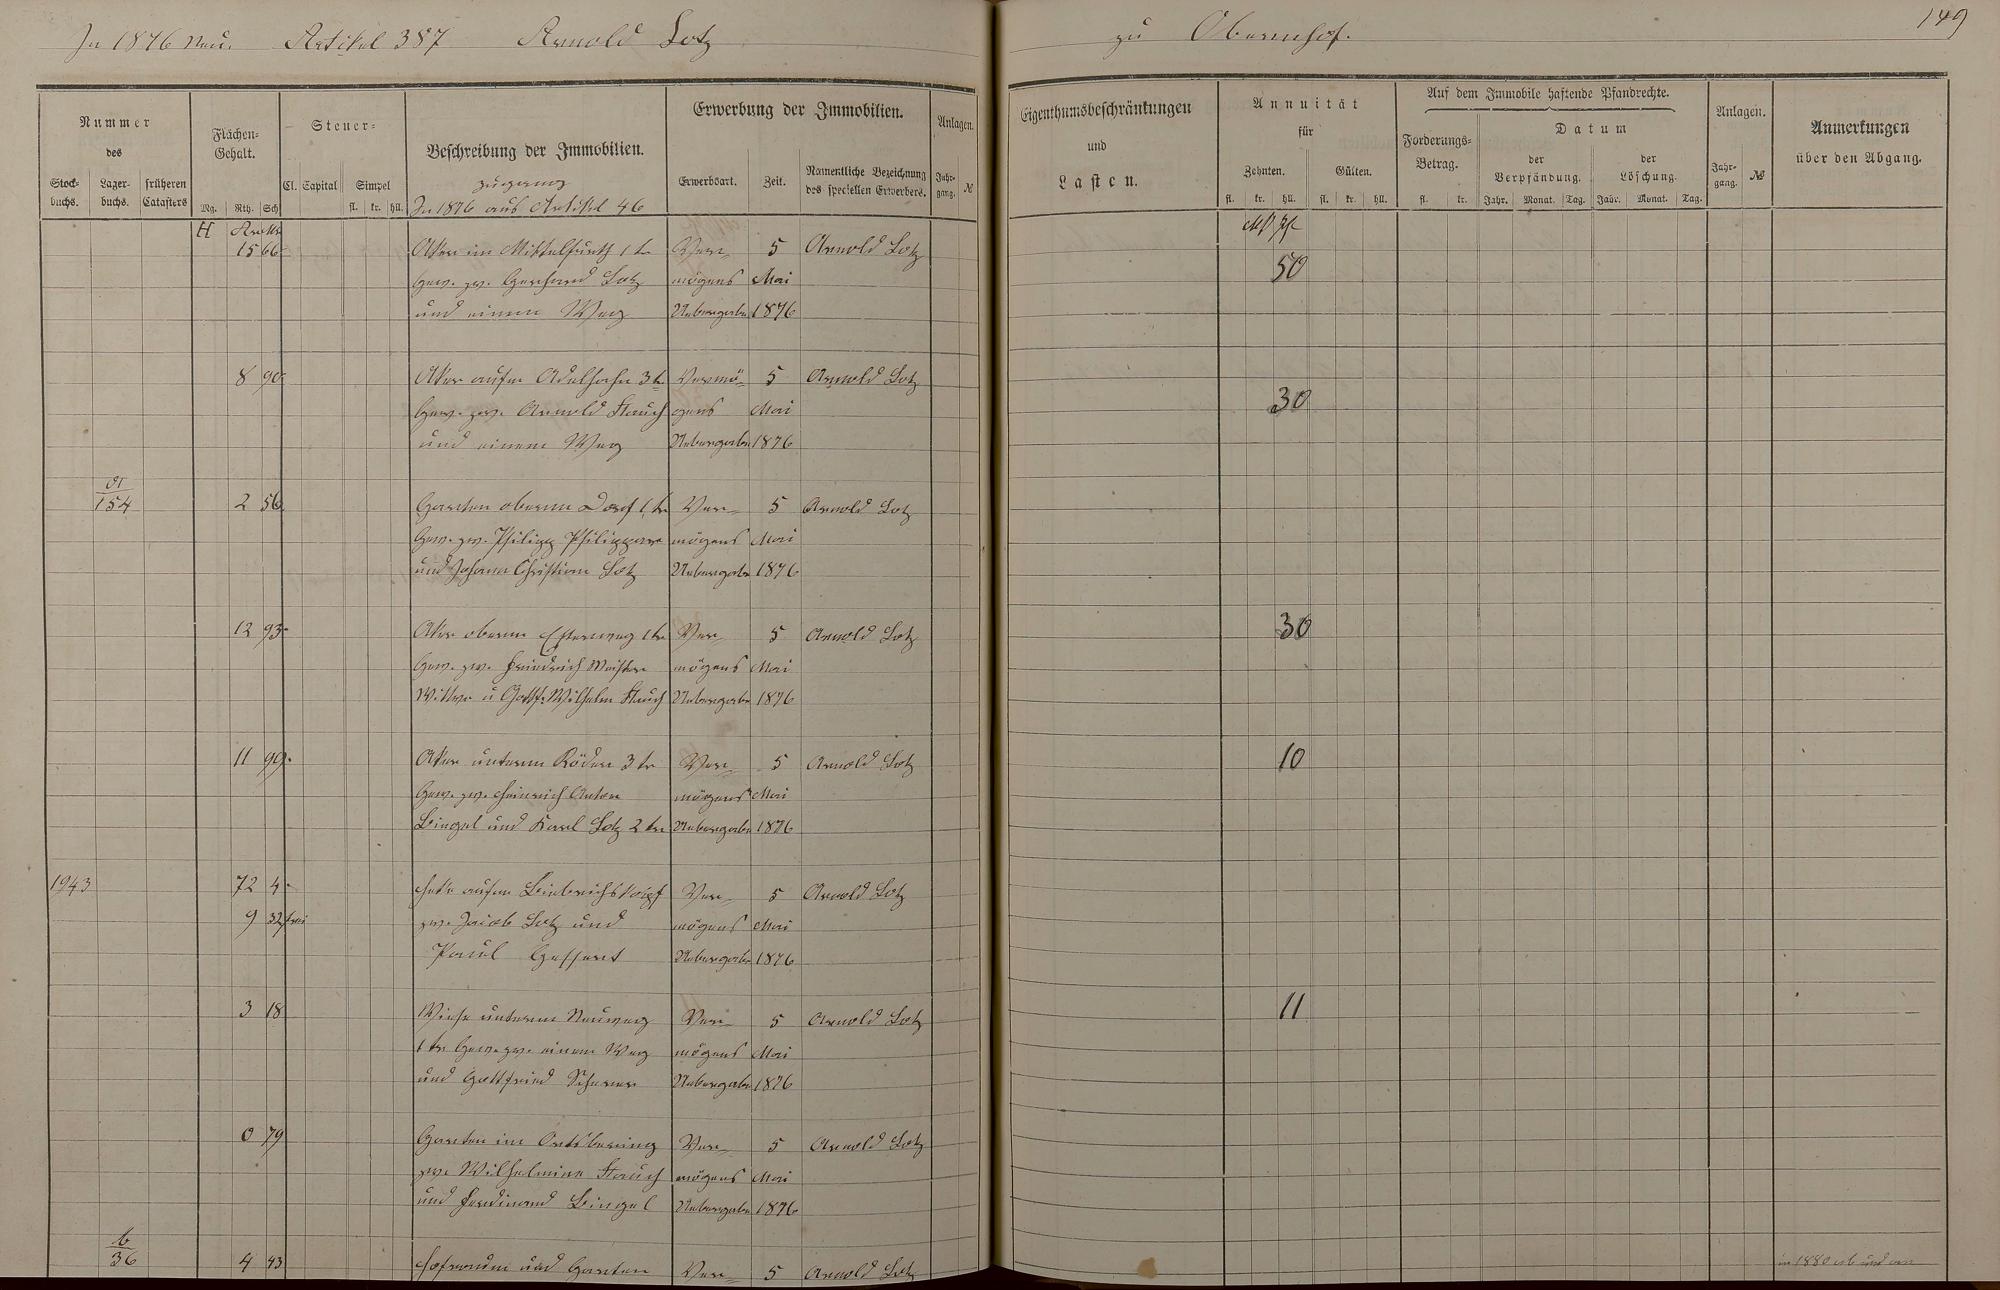 In 1876 neu. Artikel 387 Arnold Lotz
zu Obernhof. 149
Nummer
des
Stock-
buchs.
Lager-
buchs.
früheren
Catasters
Flächen-
Gehalt.
Mg. Rth. Sch
Steuer-
Cl. Capital Simpel
fl. kr. hll.
Beschreibung der Immobilien.
Zugang
In 1876 aus Artikel 46
Erwerbung der Immobilien.
Erwerbsart. Zeit.
Namentliche Bezeichnung
des speciellen Erwerbers.
Anlagen.
Jahr-
gang. №
Eigenthumsbeschränkungen
und
Lasten.
Annuität
für
Zehnten. Gülten.
fl. kr. hll. fl. kr. hll.
Auf dem Immobile haftende Pfandrechte.
Forderungs-
Betrag.
fl. kr.
Datum
der
Verpfändung.
Jahr. Monat. Tag.
der
Löschung.
Jahr. Monat. Tag.
Anlagen.
Jahr-
gang. №
Anmerkungen
über den Abgang.
15 66 Acker im 1 tr Ver- 5 Arnold Lotz
Gew. zw. Gerhard Lotz mögens Mai 50
und einem Weg Uebergabe 1876
8 90 Acker aufm 3 tr Vermö- 5 Arnold Lotz
Gew. zw. Arnold Stauch gens Mai 30
und einem Weg Uebergabe 1876
154 2 56 Garten oberm Dorf 1 tr Ver- 5 Arnold Lotz
Gew. zw. Philipp mögens Mai
und Johann Christian Lotz Uebergabe 1876
12 93 Acker oberm 1 tr Ver- 5 Arnold Lotz 30
Gew. zw. Friedrich Meister mögens Mai
Wittwe u Gottfr. Wilhelm Stauch Uebergabe 1876
11 90 Acker unterm Röder 3 tr Ver- 5 Arnold Lotz 10
Gew. zw. Heinrich Anton mögens Mai
Bingel und Karl Lotz 2 tr Uebergabe 1876
1943 72 4 Ver- 5 Arnold Lotz
9 32 frei zw. Jacob Lotz und mögens Mai
Paul Geffert Uebergabe 1876
3 18 Wiese unterm Neuweg Ver- 5 Arnold Lotz 11
1 tr Gew. zw. einem Weg mögens Mai
und Gottfried Scherer Uebergabe 1876
0 79 Garten im Ortsbering Ver- 5 Arnold Lotz
zw. Wilhelmine Stauch mögens Mai
und Ferdinand Bingel Uebergabe 1876
b
36 4 43 Hofraum und Garten Ver- 5 Arnold Lotz
in 1880 ab und an